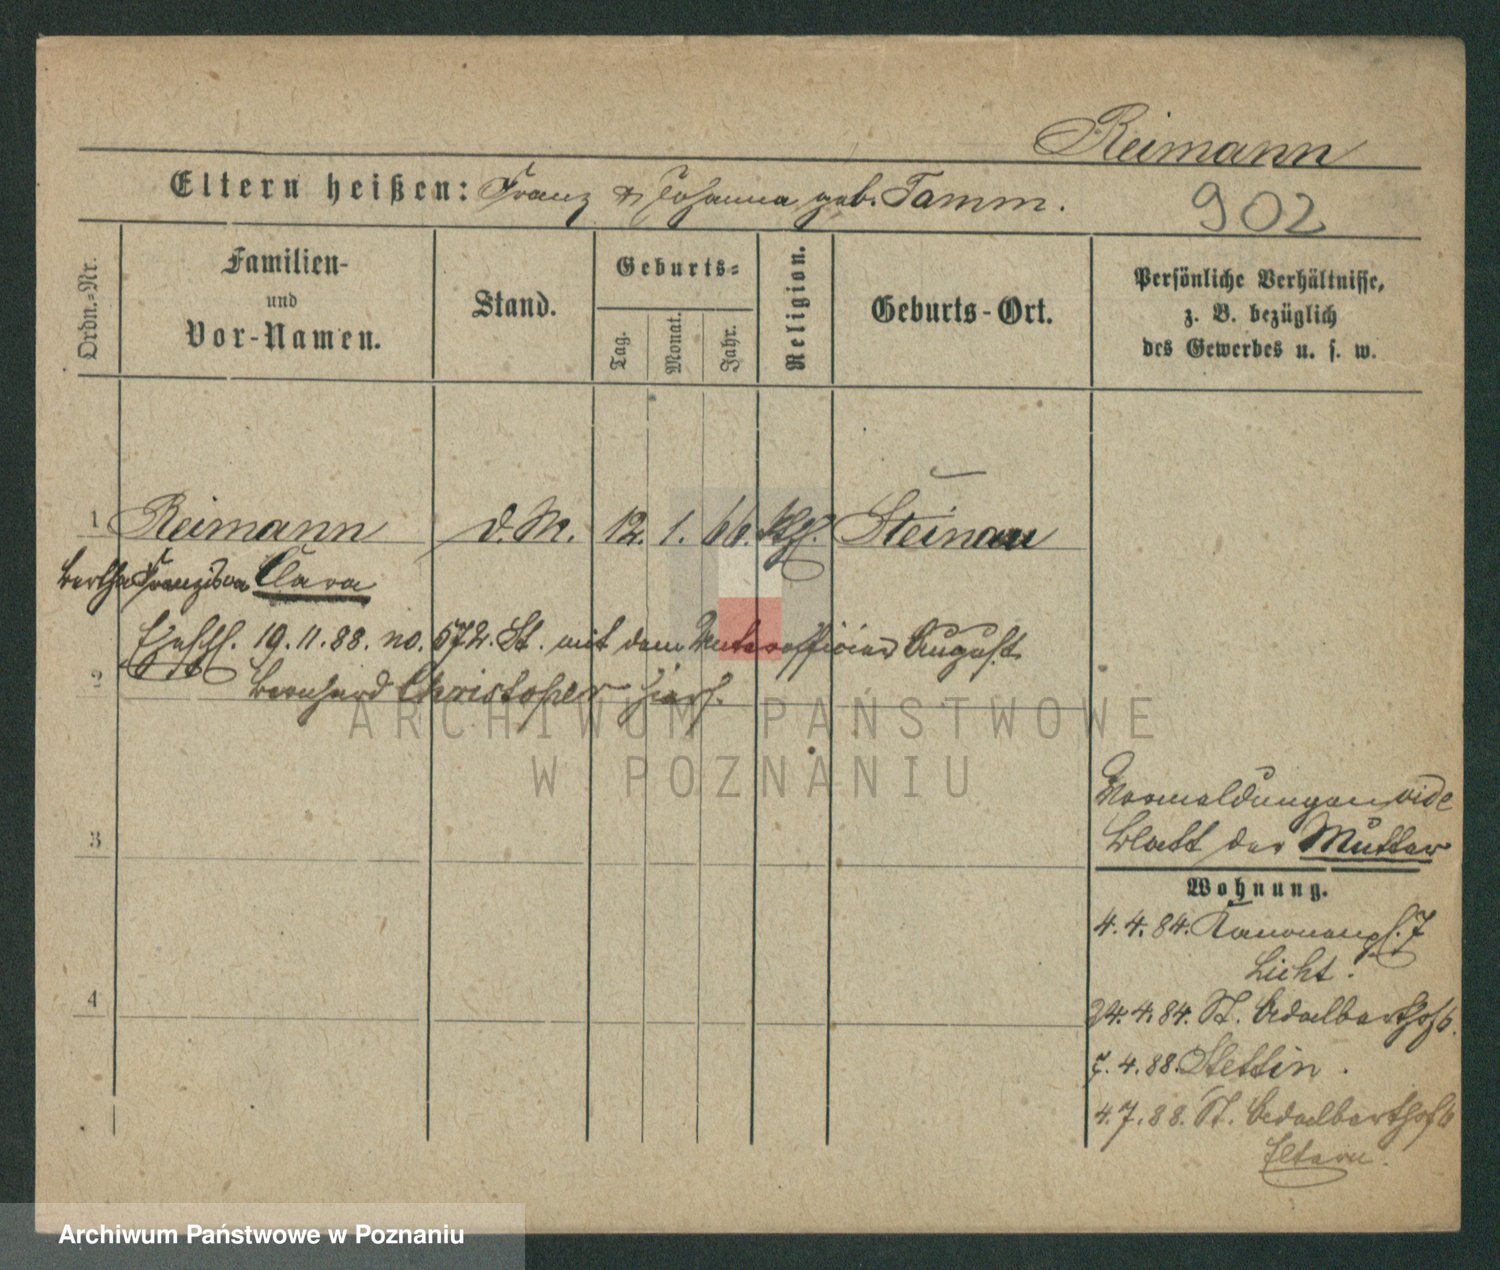 Reimann
Eltern heißen: Franz & Johanna geb. Tamm.
902
Ordn.-Nr.
Familien-
und
Vor-Namen.
Stand.
Geburts-
Tag.
Monat.
Jahr.
Religion.
Geburts-Ort.
Persönliche Verhältnisse,
z. B. bezüglich
des Gewerbes u. s. w.
1 Reimann d. M. 12. 1. 66. Steinau
Bertha Franziska Clara
19. 11. 88. no. 572. St. mit dem Unterofficier August
2 Bernhard Christopher
ARCHIWUM PAŃSTWOWE
W POZNANIU
Vormeldungen vide
Blatt der Mutter
3
Wohnung.
4. 4. 84. Kanonenpl. 7
Licht.
4
24. 4. 84. St. Adalberthof 6.
7. 4. 88. Stettin.
4. 7. 88. St. Adalberthof 6
Eltern.
Archiwum Państwowe w Poznaniu